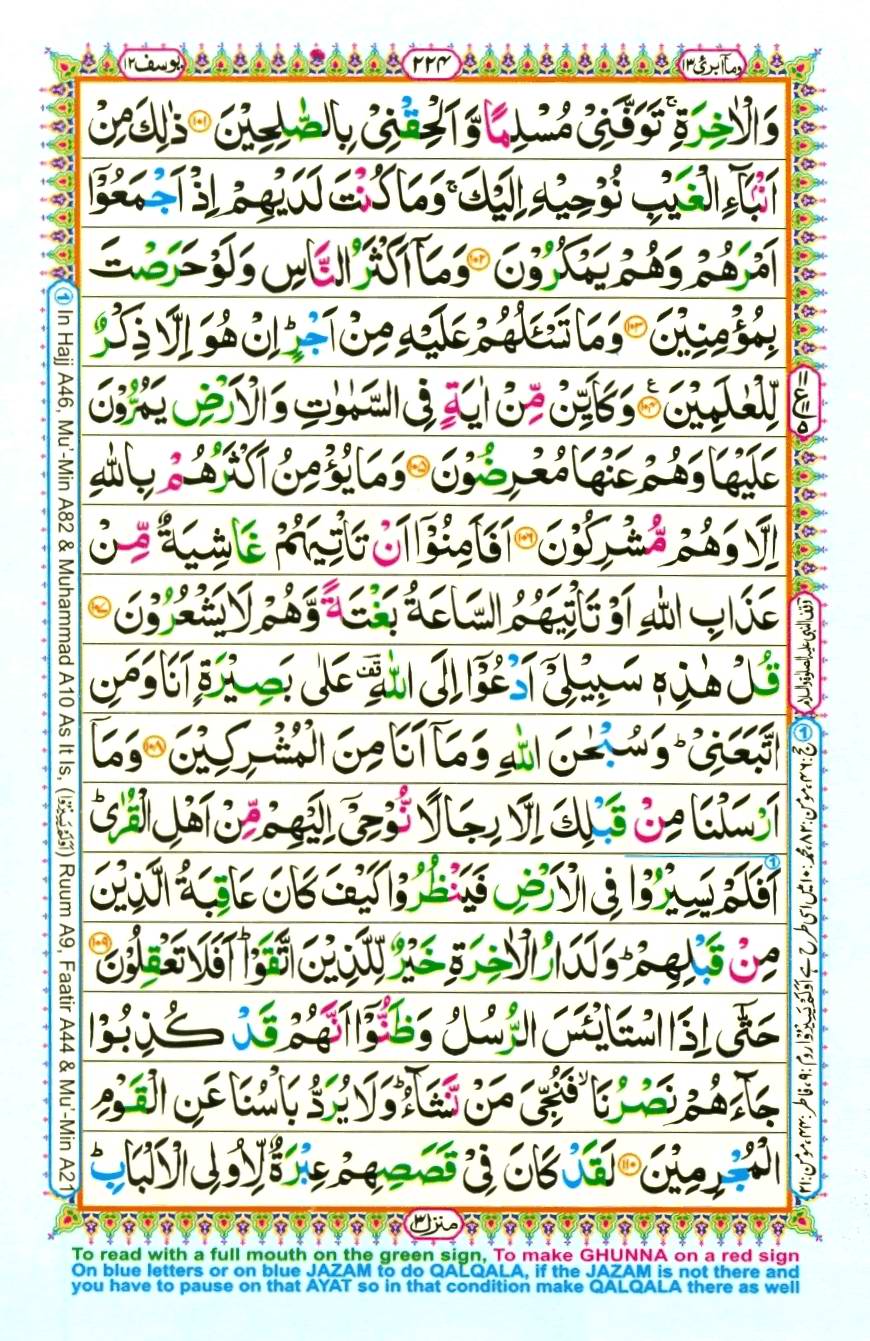 وما ابرئ ١٣
٢٢٤
يوسف ١٢
وَالْاٰخِرَةِ ۚ تَوَفَّنِىْ مُسْلِمًا وَّاَلْحِقْنِىْ بِالصّٰلِحِيْنَ ۝١٠١ ذٰلِكَ مِنْ
اَنْۢبَآءِ الْغَيْبِ نُوْحِيْهِ اِلَيْكَ ۚ وَمَا كُنْتَ لَدَيْهِمْ اِذْ اَجْمَعُوْۤا
اَمْرَهُمْ وَهُمْ يَمْكُرُوْنَ ۝١٠٢ وَمَاۤ اَكْثَرُ النَّاسِ وَلَوْ حَرَصْتَ
بِمُؤْمِنِيْنَ ۝١٠٣ وَمَا تَسْـَٔلُهُمْ عَلَيْهِ مِنْ اَجْرٍ ؕ اِنْ هُوَ اِلَّا ذِكْرٌ
لِّلْعٰلَمِيْنَ ۝١٠٤ ع وَكَاَيِّنْ مِّنْ اٰيَةٍ فِى السَّمٰوٰتِ وَالْاَرْضِ يَمُرُّوْنَ
عَلَيْهَا وَهُمْ عَنْهَا مُعْرِضُوْنَ ۝١٠٥ وَمَا يُؤْمِنُ اَكْثَرُهُمْ بِاللّٰهِ
اِلَّا وَهُمْ مُّشْرِكُوْنَ ۝١٠٦ اَفَاَمِنُوْۤا اَنْ تَاْتِيَهُمْ غَاشِيَةٌ مِّنْ
عَذَابِ اللّٰهِ اَوْ تَاْتِيَهُمُ السَّاعَةُ بَغْتَةً وَّهُمْ لَا يَشْعُرُوْنَ ۝١٠٧
قُلْ هٰذِهٖ سَبِيْلِىْۤ اَدْعُوْۤا اِلَى اللّٰهِ ۣ عَلٰى بَصِيْرَةٍ اَنَا وَمَنِ
اتَّبَعَنِىْ ؕ وَسُبْحٰنَ اللّٰهِ وَمَاۤ اَنَا مِنَ الْمُشْرِكِيْنَ ۝١٠٨ وَمَاۤ
اَرْسَلْنَا مِنْ قَبْلِكَ اِلَّا رِجَالًا نُّوْحِىْۤ اِلَيْهِمْ مِّنْ اَهْلِ الْقُرٰى ؕ
اَفَلَمْ يَسِيْرُوْا فِى الْاَرْضِ فَيَنْظُرُوْا كَيْفَ كَانَ عَاقِبَةُ الَّذِيْنَ
مِنْ قَبْلِهِمْ ؕ وَلَدَارُ الْاٰخِرَةِ خَيْرٌ لِّلَّذِيْنَ اتَّقَوْا ؕ اَفَلَا تَعْقِلُوْنَ ۝١٠٩
حَتّٰۤى اِذَا اسْتَايْـَٔسَ الرُّسُلُ وَظَنُّوْۤا اَنَّهُمْ قَدْ كُذِبُوْا
جَآءَهُمْ نَصْرُنَا ۙ فَنُجِّىَ مَنْ نَّشَآءُ ؕ وَلَا يُرَدُّ بَاْسُنَا عَنِ الْقَوْمِ
الْمُجْرِمِيْنَ ۝١١٠ لَقَدْ كَانَ فِىْ قَصَصِهِمْ عِبْرَةٌ لِّاُولِى الْاَلْبَابِ ؕ
منزل ٣
① In Hajj A46, Mu'-Min A82 & Muhammad A10 As It Is, (اَوَلَمْ يَسِيْرُوْا) Ruum A9, Faatir A44 & Mu'-Min A21
١١ ع ٥
وقف النبى عليه الصلوة والسلام
① حج: ٤٦، مؤمن: ٨٢، محمد: ١٠ میں اسی طرح ہے اَوَلَمْ يَسِيْرُوْا روم: ٩، فاطر: ٤٤، مؤمن: ٢١
To read with a full mouth on the green sign, To make GHUNNA on a red sign
On blue letters or on blue JAZAM to do QALQALA, if the JAZAM is not there and
you have to pause on that AYAT so in that condition make QALQALA there as well